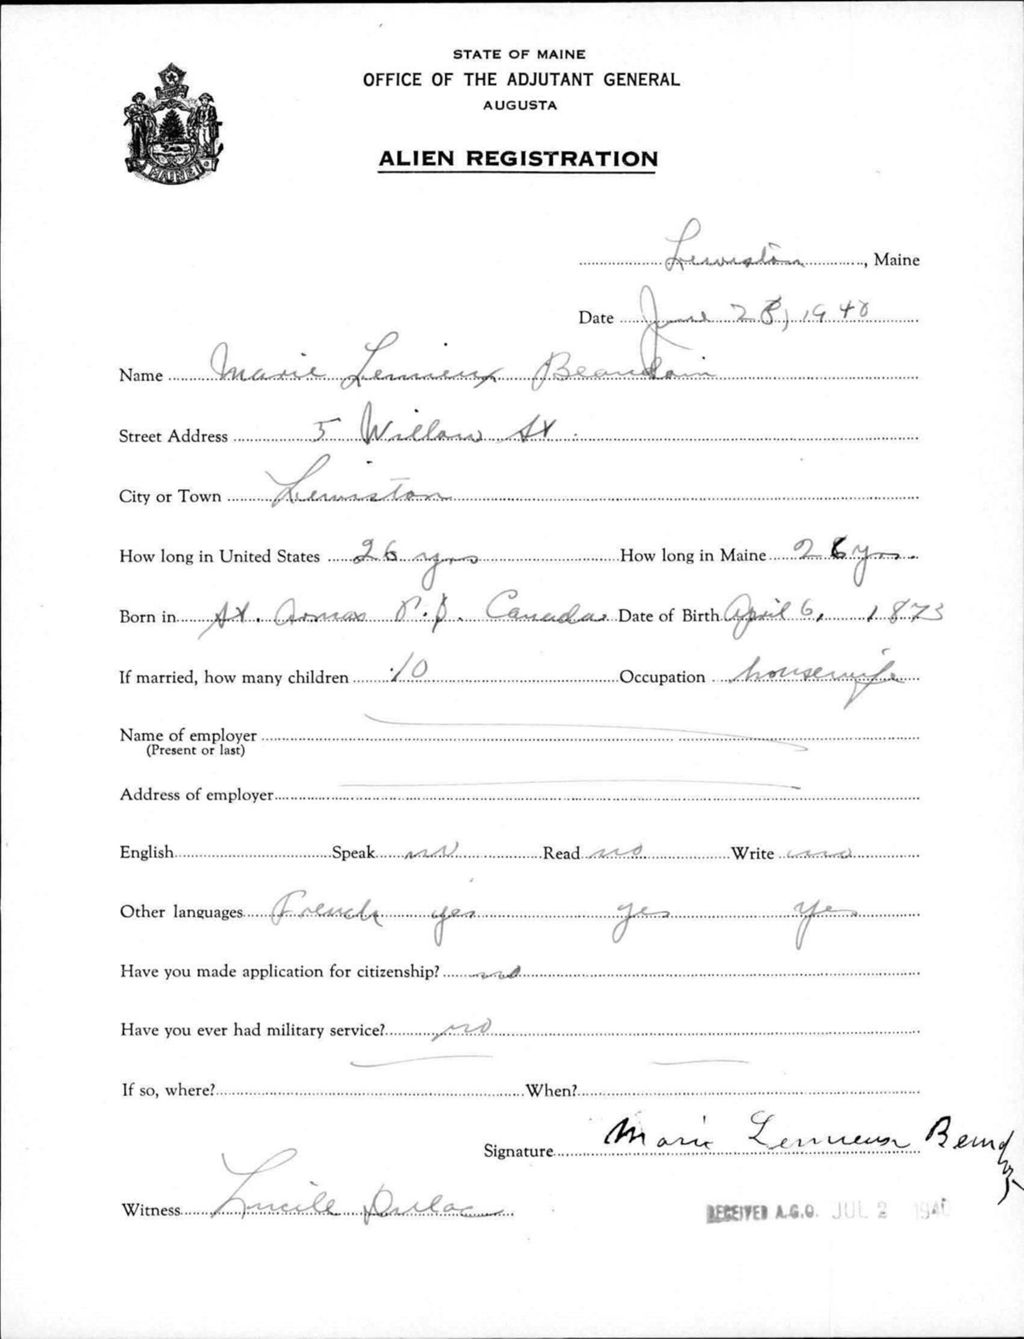 STATE OF MAINE
OFFICE OF THE ADJUTANT GENERAL
AUGUSTA
MAINE
ALIEN REGISTRATION
Lewiston, Maine
Date June 28, 1940
Name Marie Lemieux Beaudoin
Street Address 5 Willow St.
City or Town Lewiston
How long in United States 26 yrs How long in Maine 26 yrs.
Born in St. Armas P.Q. Canada Date of Birth April 6, 1873
If married, how many children 10 Occupation housewife
Name of employer
(Present or last)
Address of employer
English Speak no Read no Write no
Other languages French yes yes yes
Have you made application for citizenship? no
Have you ever had military service? no
If so, where? When?
Signature Marie Lemieux
Witness Lucile Dulac
RECEIVED A.G.O. JUL 2 1940